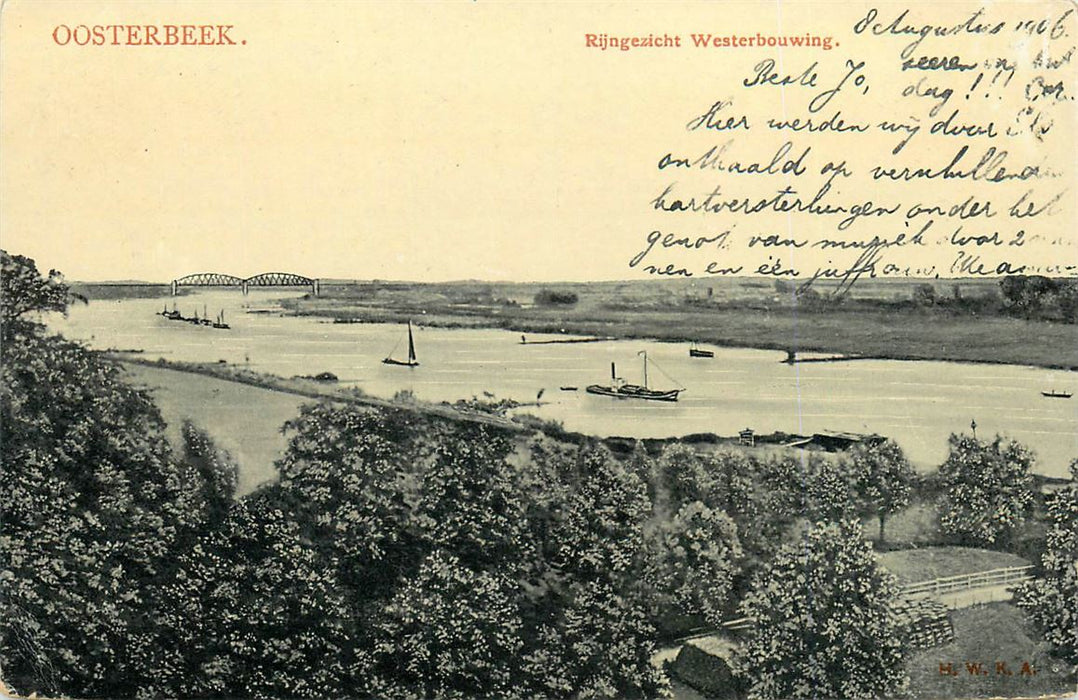 OOSTERBEEK.
Rijngezicht Westerbouwing.
8 Augustus 1906.
Beste Jo,
dag!!!
Hier werden wij door
onthaald op verschillende
hartversterkingen onder het
genot van muziek door 2
nen en één juffrouw.
H. W. K. A.